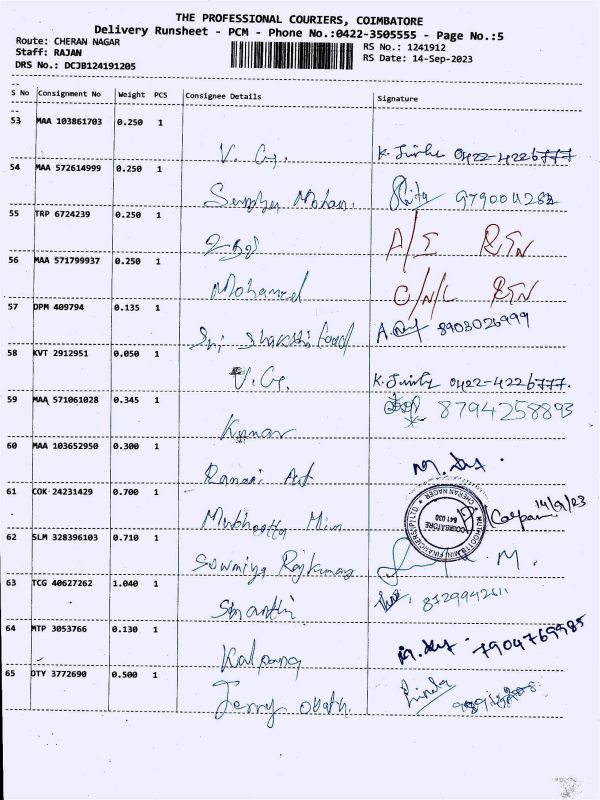 THE PROFESSIONAL COURIERS, COIMBATORE
Delivery Runsheet - PCM - Phone No.:0422-3505555 - Page No.:5
Route: CHERAN NAGAR
RS No.: 1241912
Staff: RAJAN
RS Date: 14-Sep-2023
DRS No.: DCJB124191205
S No Consignment No Weight PCS Consignee Details Signature
53 MAA 103861703 0.250 1
V. G. K. 0422-4226777
54 MAA 572614999 0.250 1
Mohan.
55 TRP 6724239 0.250 1
A/S RTN
56 MAA 571799937 0.250 1
Mohamed C/N/L RTN
57 DPM 409794 0.135 1
Sri Shakthi food 8903026999
58 KVT 2912951 0.050 1
V. G. K. 0422-4226777.
59 MAA 571061028 0.345 1
Kumar 8794258893
60 MAA 103652950 0.300 1
61 COK 24231429 0.700 1
14/9/23
COIMBATORE
641 030
62 SLM 328396103 0.710 1
Sowmiya Rajkumar M.
63 TCG 40627262 1.040 1
Shanthi
64 MTP 3053766 0.130 1
Kalpana 7904769985
65 OTY 3772690 0.500 1
Jerry